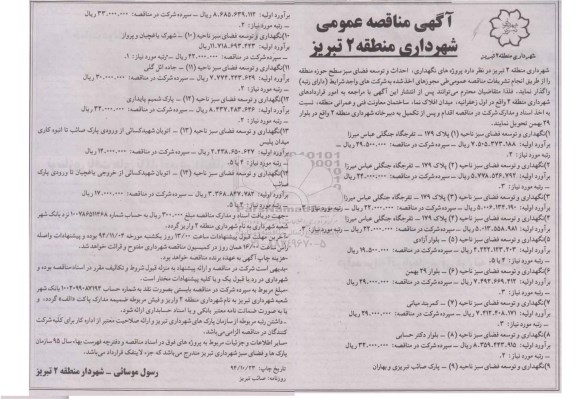 آگهی مناقصه عمومی
شهرداری منطقه ۲ تبریز
شهرداری منطقه ۲ تبریز
شهرداری منطقه ۲ تبریز در نظر دارد پروژه های نگهداری، احداث و توسعه فضای سبز سطح حوزه منطقه
را از طریق انجام تشریفات مناقصه عمومی طی مجوزهای اخذ شده به شرکت های واجد شرایط (دارای رتبه)
واگذار نماید. فلذا متقاضیان محترم می‌توانند پس از انتشار این آگهی با مراجعه به امور قراردادهای
شهرداری منطقه ۲ واقع در اول زعفرانیه، میدان افلاک نما، ساختمان معاونت فنی و عمرانی منطقه، نسبت
به اخذ اسناد و مدارک شرکت در مناقصه اقدام و پس از تکمیل به دبیرخانه شهرداری منطقه ۲ واقع در بلوار
۲۹ بهمن تحویل نمایند.
۱)نگهداری و توسعه فضای سبز ناحیه (۱) پلاک ۱۷۹ – تفرجگاه جنگلی عباس میرزا
برآورد اولیه: ۷.۵۰۵.۳۷۳.۱۸۸ ریال – سپرده شرکت در مناقصه: ۲۹.۵۰۰.۰۰۰ ریال
– رتبه مورد نیاز: ۲.
۲)نگهداری و توسعه فضای سبز ناحیه (۲) پلاک ۱۷۹ – تفرجگاه جنگلی عباس میرزا
برآورد اولیه: ۵.۷۷۸.۵۲۶.۷۹۲ ریال – سپرده شرکت در مناقصه: ۲۴.۰۰۰.۰۰۰ ریال
– رتبه مورد نیاز: ۳.
۳)نگهداری و توسعه فضای سبز ناحیه (۳) پلاک ۱۷۹ – تفرجگاه جنگلی عباس میرزا
برآورد اولیه: ۵.۰۰۶.۱۳۳.۱۹۰ ریال – سپرده شرکت در مناقصه: ۲۲.۰۰۰.۰۰۰ ریال – رتبه مورد نیاز: ۳.
۴)نگهداری و توسعه فضای سبز ناحیه (۴) پلاک ۱۷۹ – تفرجگاه جنگلی عباس میرزا
برآورد اولیه: ۵.۰۱۳.۵۵۸.۹۸۱ ریال – سپرده شرکت در مناقصه: ۲۲.۰۰۰.۰۰۰ ریال – رتبه مورد نیاز: ۳.
۵)نگهداری و توسعه فضای سبز ناحیه (۵) – بلوار آزادی
برآورد اولیه: ۴.۲۲۲.۱۳۳.۲۰۳ ریال – سپرده شرکت در مناقصه: ۱۹.۵۰۰.۰۰۰ ریال
– رتبه مورد نیاز: ۴ یا ۵.
۶)نگهداری و توسعه فضای سبز ناحیه (۶) – بلوار ۲۹ بهمن
برآورد اولیه: ۷.۴۹۲.۶۶۹.۳۱۳ ریال – سپرده شرکت در مناقصه: ۲۹.۰۰۰.۰۰۰ ریال
– رتبه مورد نیاز: ۳.
۷)نگهداری و توسعه فضای سبز ناحیه (۷) – کمربند میانی
برآورد اولیه: ۷.۳۱۳.۴۰۸.۱۷۱ ریال – سپرده شرکت در مناقصه: ۲۹.۰۰۰.۰۰۰ ریال
– رتبه مورد نیاز: ۳.
۸)نگهداری و توسعه فضای سبز ناحیه (۸) – بلوار دکتر حسابی
برآورد اولیه: ۸.۳۵۹.۶۴۳.۹۱۵ ریال – سپرده شرکت در مناقصه: ۳۲.۰۰۰.۰۰۰ ریال
۹)نگهداری و توسعه فضای سبز ناحیه (۹) – پارک صائب تبریزی و بهاران
برآورد اولیه: ۸.۶۸۵.۶۳۹.۱۱۲ ریال – سپرده شرکت در مناقصه: ۳۳.۰۰۰.۰۰۰ ریال
– رتبه مورد نیاز: ۲.
۱۰)نگهداری و توسعه فضای سبز ناحیه (۱۰) – شهرک باغچبان و پرواز
برآورد اولیه: ۱۱.۷۱۸.۶۹۳.۴۳۳ریال
– سپرده شرکت در مناقصه: ۴۲.۰۰۰.۰۰۰ ریال –رتبه مورد نیاز: ۱.
۱۱)نگهداری و توسعه فضای سبز ناحیه (۱۱) – جاده ائل گلی
برآورد اولیه: ۷.۷۷۲.۳۳۳.۶۲۹ ریال – سپرده شرکت در مناقصه: ۳۰.۰۰۰.۰۰۰ ریال
– رتبه مورد نیاز: ۲.
۱۲)نگهداری و توسعه فضای سبز ناحیه (۱۲) – پارک شمیم پایداری
برآورد اولیه: ۸.۸۳۷.۴۸۳.۶۴۶ ریال – سپرده شرکت در مناقصه: ۳۳.۰۰۰.۰۰۰ ریال
– رتبه مورد نیاز: ۲.
۱۳)نگهداری و توسعه فضای سبز ناحیه (۱۳) – اتوبان شهیدکسائی از ورودی پارک صائب تا انبوه کاری
میدان پلیس
برآورد اولیه: ۲.۴۳۸.۶۵۰.۶۲۷ ریال – سپرده شرکت در مناقصه: ۱۴.۰۰۰.۰۰۰ ریال
– رتبه مورد نیاز: ۴ یا ۵.
۱۴)نگهداری و توسعه فضای سبز ناحیه (۱۴) – اتوبان شهیدکسائی از خروجی باغچبان تا ورودی پارک
صائب
برآورد اولیه: ۳.۳۶۸.۸۴۷.۷۸۲ ریال – سپرده شرکت در مناقصه: ۱۷.۰۰۰.۰۰۰ ریال
– رتبه مورد نیاز: ۴ یا ۵.
–جهت دریافت اسناد و مدارک مناقصه مبلغ ۳۰۰.۰۰۰ ریال به حساب شماره ۱۰۰۷۸۶۵۱۱۳۶۸ نزد بانک شهر
شعبه شهرداری به نام شهرداری منطقه ۲ واریز گردد.
–آخرین مهلت قبول پیشنهادات ساعت ۱۳/۰۰ روز یکشنبه مورخه ۹۴/۱۱/۰۴ بوده و پیشنهادات واصله
راس ساعت ۱۶/۰۰ همان روز در کمیسیون مناقصه شهرداری مفتوح و قرائت خواهد شد.
–هزینه چاپ آگهی به عهده برنده مناقصه خواهد بود.
–بدیهی است شرکت در مناقصه و ارائه پیشنهاد به منزله قبول شروط و تکالیف مقرر در اسناد مناقصه بوده و
شهرداری در رد یا قبول یک و یا کلیه پیشنهادات مختار است.
–مبلغ مربوط به سپرده شرکت در مناقصه بایستی بصورت نقد به شماره حساب ۱۰۰۲۰۹۹۰۸۷۱۹۲ بانک شهر
شعبه شهرداری تبریز به نام شهرداری منطقه ۲ واریز و فیش مربوطه ضمیمه مدارک پاکت «الف» گردد، و
یا به صورت ضمانت نامه معتبر بانکی و یا اسناد حسابداری ارائه شود.
–داشتن رتبه مربوطه از سازمان پارک های شهرداری تبریز و ارائه صلاحیت معتبر از اداره کار برای کلیه شرکت
کنندگان در مناقصه الزامی می‌باشد.
–سایر اطلاعات و جزئیات مربوط به پروژه های فوق در اسناد مناقصه و دفترچه فهرست بهاء سال ۹۵ سازمان
پارک ها و فضای سبز شهرداری تبریز مندرج می‌باشد که جزء لاینفک قرارداد می‌باشد.
تاریخ چاپ: ۹۴/۱۰/۲۳
روزنامه: صائب تبریز
رسول موسائی – شهردار منطقه ۲ تبریز